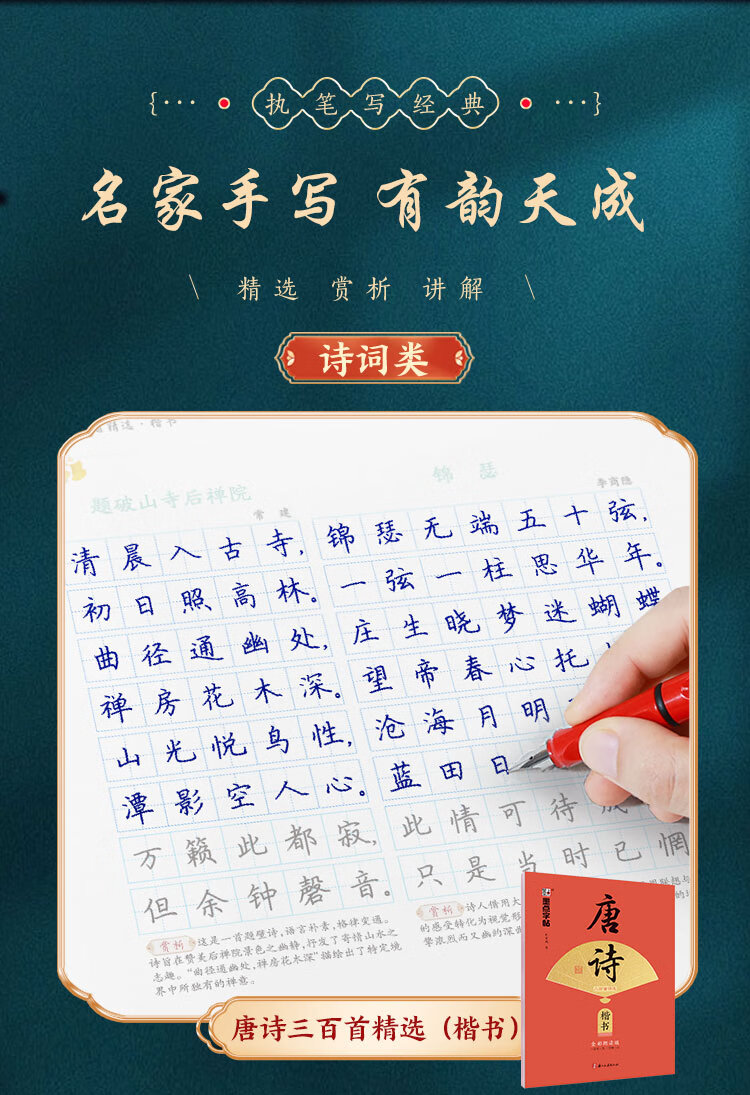 执笔写经典
名家手写 有韵天成
精选 赏析 讲解
诗词类
精选·楷书
题破山寺后禅院
常建
清晨入古寺,
初日照高林。
曲径通幽处,
禅房花木深。
山光悦鸟性,
潭影空人心。
万籁此都寂,
但余钟磬音。
赏析 这是一首题壁诗,语言朴素,格律变通。
诗旨在赞美后禅院景色之幽静,抒发了寄情山水之
志趣。“曲径通幽处,禅房花木深”描绘出了特定境
界中所独有的禅意。
锦瑟
李商隐
锦瑟无端五十弦,
一弦一柱思华年。
庄生晓梦迷蝴蝶
望帝春心托
沧海月明
蓝田日
此情可待成
只是当时已惘
赏析 诗人借用大
的感受转化为视觉形
擎浓烈而又幽约深曲
唐诗三百首精选(楷书)
墨点字帖
唐诗
楷书